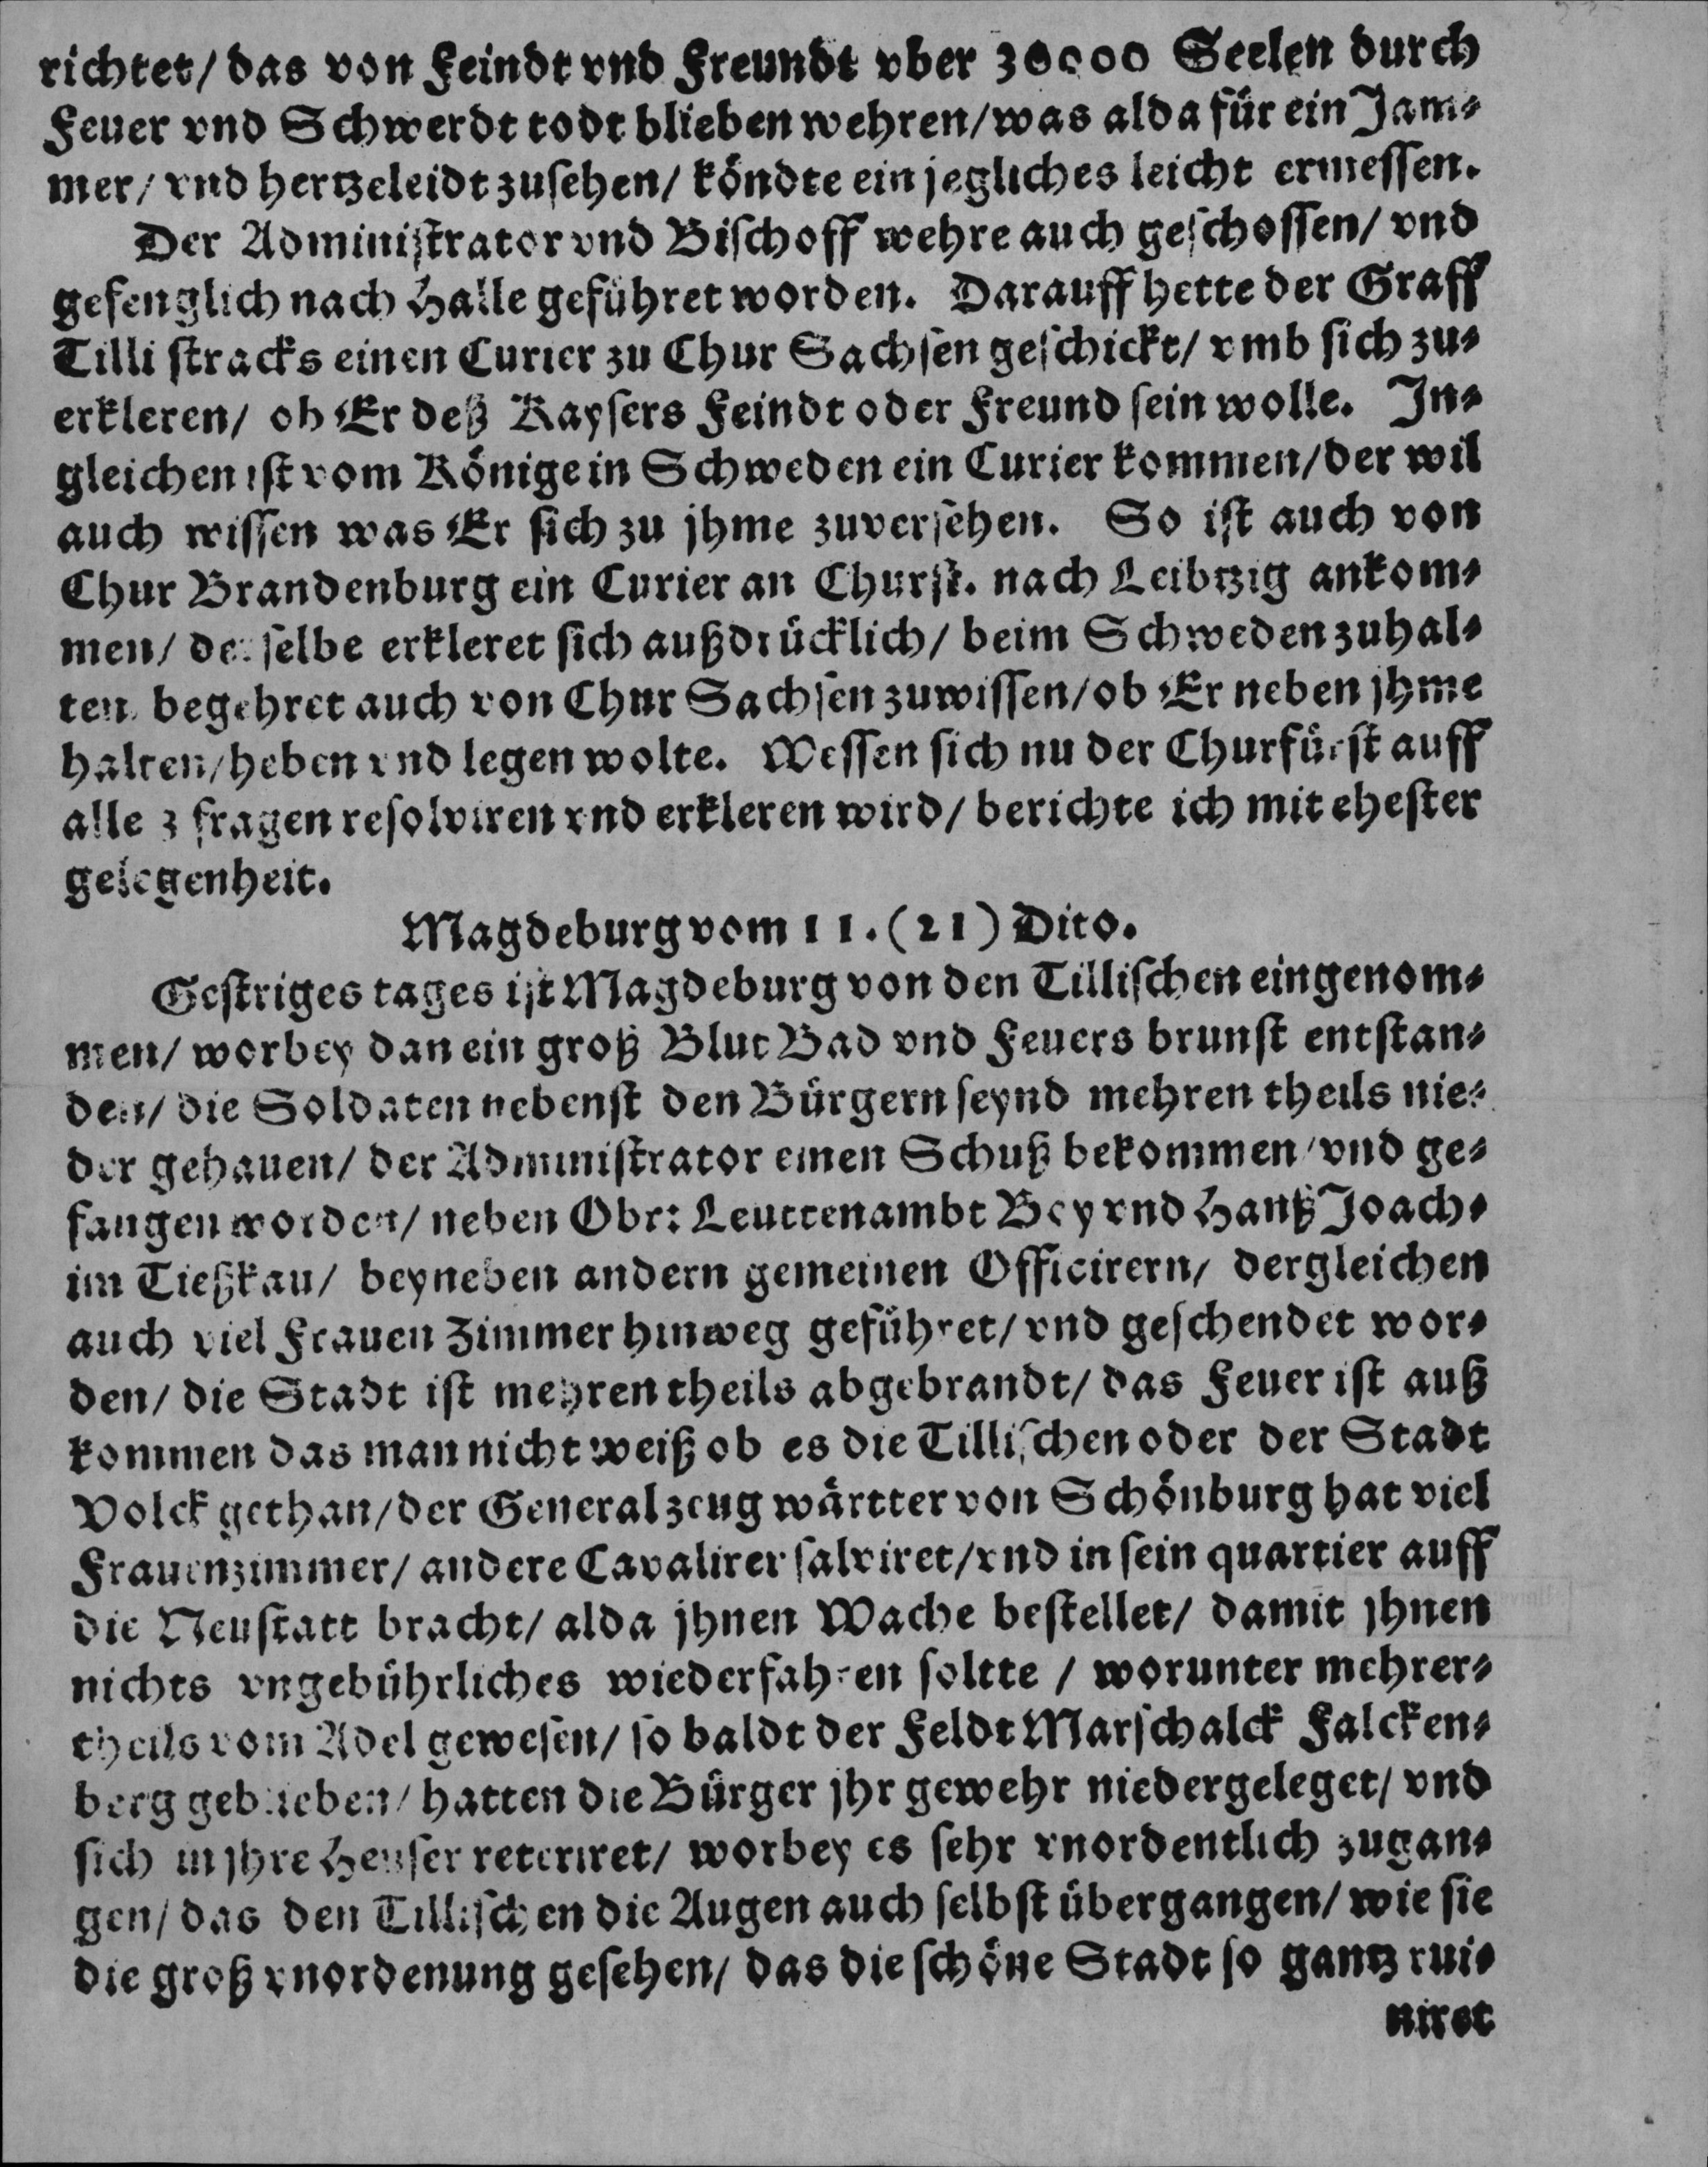 richtet/ das von Feindt vnd Freundt vber 30000 Seelen durch
Feuer vnd Schwerdt todt blieben wehren/ was alda für ein Jam⸗
mer/ vnd hertzeleidt zusehen/ köndte ein jegliches leicht ermessen.
Der Administrator vnd Bischoff wehre auch geschossen/ vnd
gefenglich nach Halle geführet worden. Darauff hette der Graff
Tilli stracks einen Curier zu Chur Sachsen geschickt/ vmb sich zu⸗
erkleren/ ob Er deß Kaysers Feindt oder Freund sein wolle. In⸗
gleichen ist vom Könige in Schweden ein Curier kommen/ der wil
auch wissen was Er sich zu jhme zuversehen. So ist auch von
Chur Brandenburg ein Curier an Churst. nach Leibtzig ankom⸗
men/ derselbe erkleret sich außdrücklich/ beim Schweden zuhal⸗
ten begehret auch von Chur Sachsen zuwissen/ ob Er neben jhme
halten/ heben vnd legen wolte. Wessen sich nu der Churfürst auff
alle 3 fragen resolviren vnd erkleren wird/ berichte ich mit ehester
gelegenheit.
Magdeburg vom 11. (21) Dito.
Gestriges tages ist Magdeburg von den Tillischen eingenom⸗
men/ worbey dan ein groß Blut Bad vnd Feuers brunst entstan⸗
den/ die Soldaten nebenst den Bürgern seynd mehren theils nie⸗
der gehauen/ der Administrator einen Schuß bekommen/ vnd ge⸗
fangen worden/ neben Obr: Leuttenambt Bey vnd Hanß Joach⸗
im Tießkau/ beyneben andern gemeinen Officirern/ dergleichen
auch viel Frauen Zimmer hinweg geführet/ vnd geschendet wor⸗
den/ die Stadt ist mehren theils abgebrandt/ das Feuer ist auß
kommen das man nicht weiß ob es die Tillischen oder der Stadt
Volck gethan/ der General zeug wärtter von Schönburg hat viel
Frauenzimmer/ andere Cavalirer salviret/ vnd in sein quartier auff
die Neustatt bracht/ alda jhnen Wache bestellet/ damit jhnen
nichts vngebührliches wiederfahren soltte / worunter mehrer⸗
theils vom Adel gewesen/ so baldt der Feldt Marschalck Falcken⸗
berg geblieben/ hatten die Bürger jhr gewehr niedergeleget/ vnd
sich in jhre Heuser reteriret/ worbey es sehr vnordentlich zugan⸗
gen/ das den Tillischen die Augen auch selbst übergangen/ wie sie
die groß vnordenung gesehen/ das die schöne Stadt so gantz rui⸗
niret